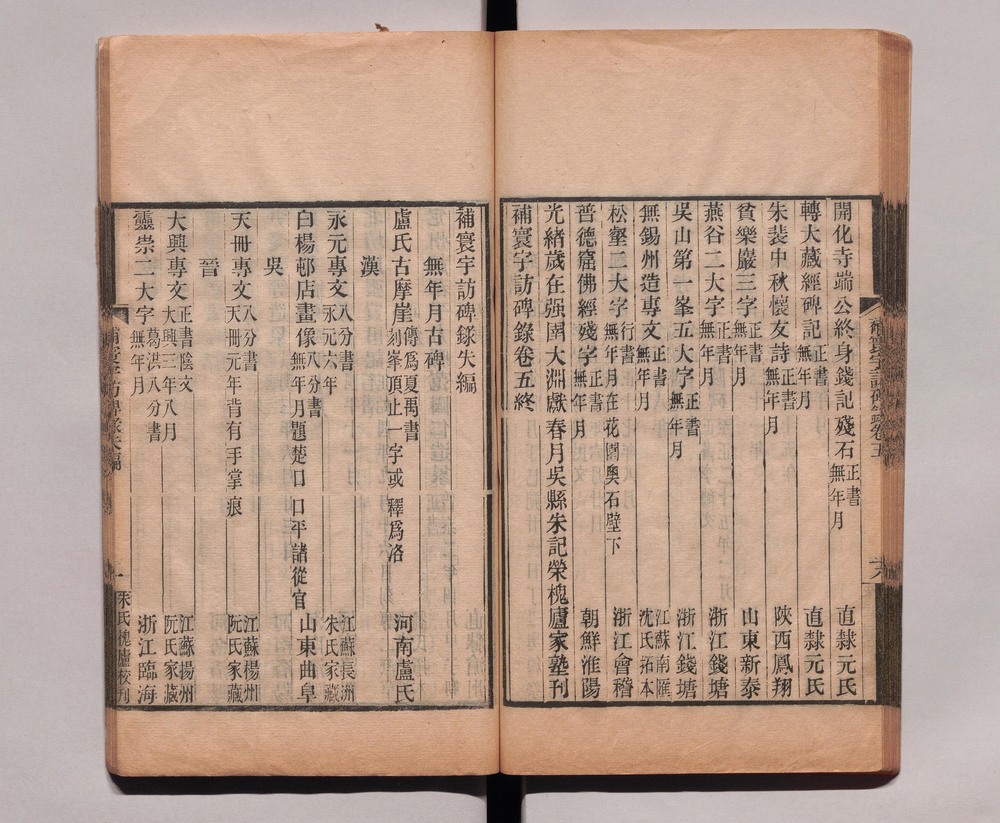 開化寺端公終身錢記殘石 正書 無年月 直隸元氏
轉大藏經碑記 正書 無年月 直隸元氏
朱裴中秋懷友詩 正書 無年月 陝西鳳翔
貧樂巖三字 正書 無年月 山東新泰
燕谷二大字 正書 無年月 浙江錢塘
吳山第一峯五大字 正書 無年月 浙江錢塘
無錫州造專文 正書 無年月 江蘇南匯 沈氏拓本
松壑二大字 行書 無年月在花園奧石壁下 浙江會稽
普德窟佛經殘字 正書 無年月 朝鮮淮陽
光緒歲在强圉大淵獻春月吳縣朱記榮槐廬家塾刊
補寰宇訪碑錄卷五終
補寰宇訪碑錄失編
無年月古碑
盧氏古摩崖 傳爲夏禹書 刻峯頂止一字或釋爲洛 河南盧氏
漢
永元專文 八分書 永元六年 江蘇長洲 朱氏家藏
白楊邨店畫像 八分書 無年月題楚口口平諸從官 山東曲阜
吳
天冊專文 八分書 天冊元年背有手掌痕 江蘇揚州 阮氏家藏
晉
大興專文 正書陰文 大興三年八月 江蘇揚州 阮氏家藏
靈崇二大字 葛洪八分書 無年月 浙江臨海
補寰宇訪碑錄失編 一 朱氏槐廬校刊